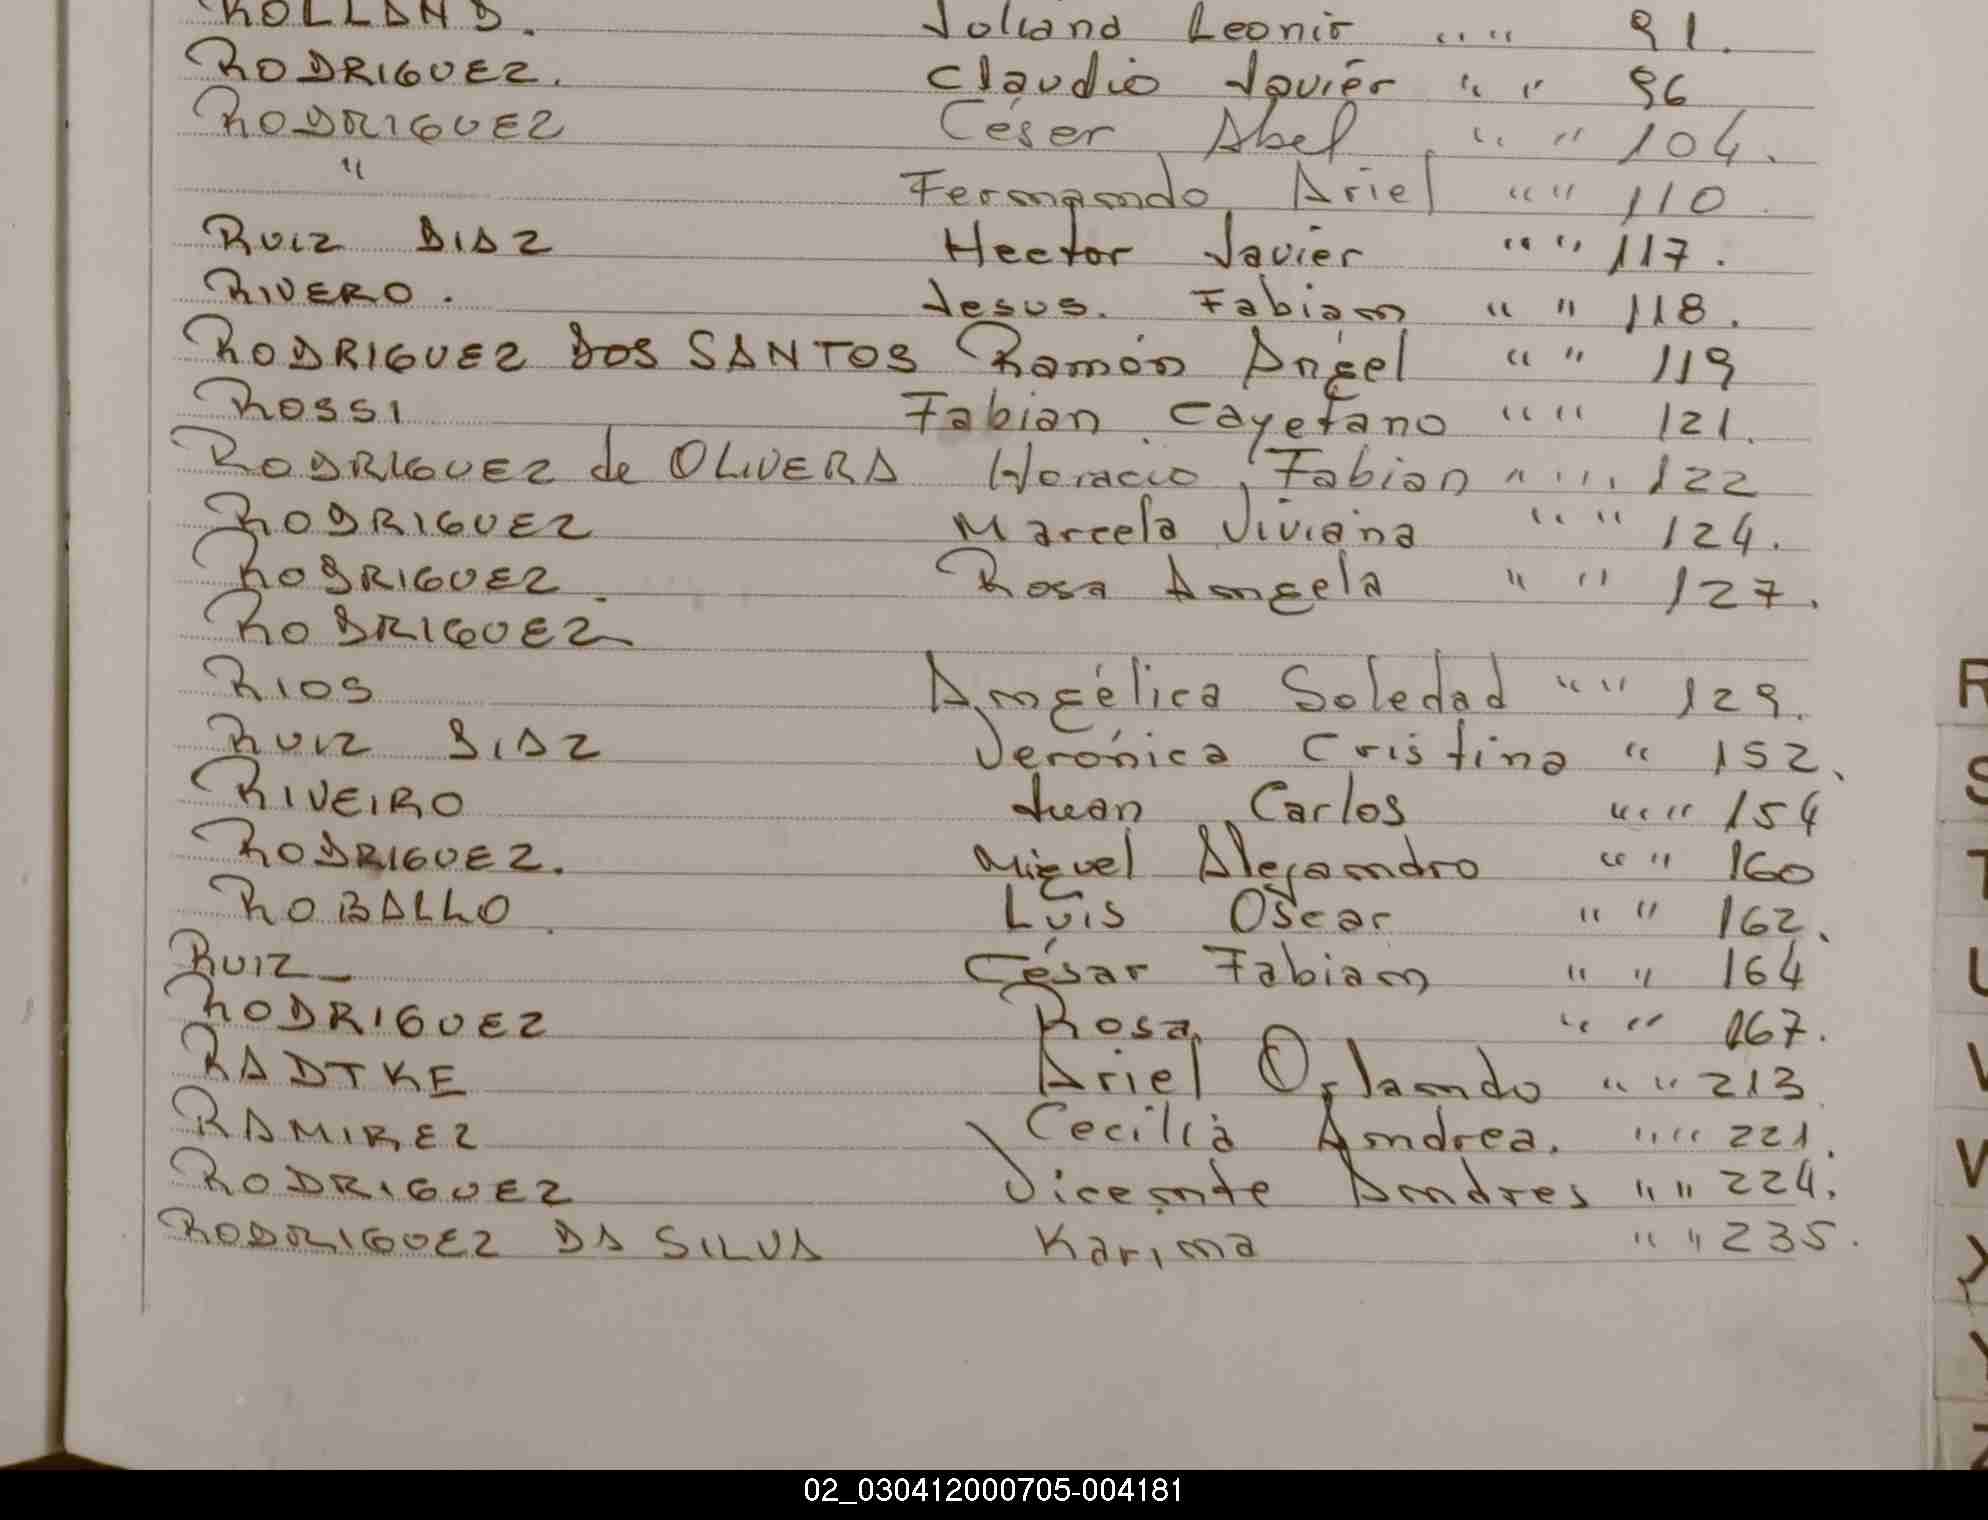 ROLLAND. Yoliana Leonir " " 91.
RODRIGUEZ. Claudio Javier " " 96
RODRIGUEZ Céser Abel " " 104.
" Fernando Ariel " " 110.
RUIZ DIAZ Hector Javier " " 117.
RIVERO. Jesus. Fabian " " 118.
RODRIGUEZ DOS SANTOS Ramón Angel " " 119
ROSSI Fabian Cayetano " " 121.
RODRIGUEZ de OLIVERA Horacio Fabian " " 122
RODRIGUEZ Marcela Viviana " " 124.
RODRIGUEZ. Rosa Angela " " 127.
RODRIGUEZ
RIOS Angélica Soledad " " 129.
RUIZ DIAZ Verónica Cristina " 152.
RIVEIRO Juan Carlos " " 154
RODRIGUEZ. Miguel Alejandro " " 160
ROBALLO. Luis Oscar " " 162.
RUIZ César Fabian " " 164
RODRIGUEZ Rosa " " 167.
RADTKE Ariel Orlando " " 213
RAMIREZ Cecilia Andrea. " " 221.
RODRIGUEZ Vicente Andres " " 224.
RODRIGUEZ DA SILVA Karina " " 235.
R
S
T
U
V
W
X
Y
Z
02_030412000705-004181